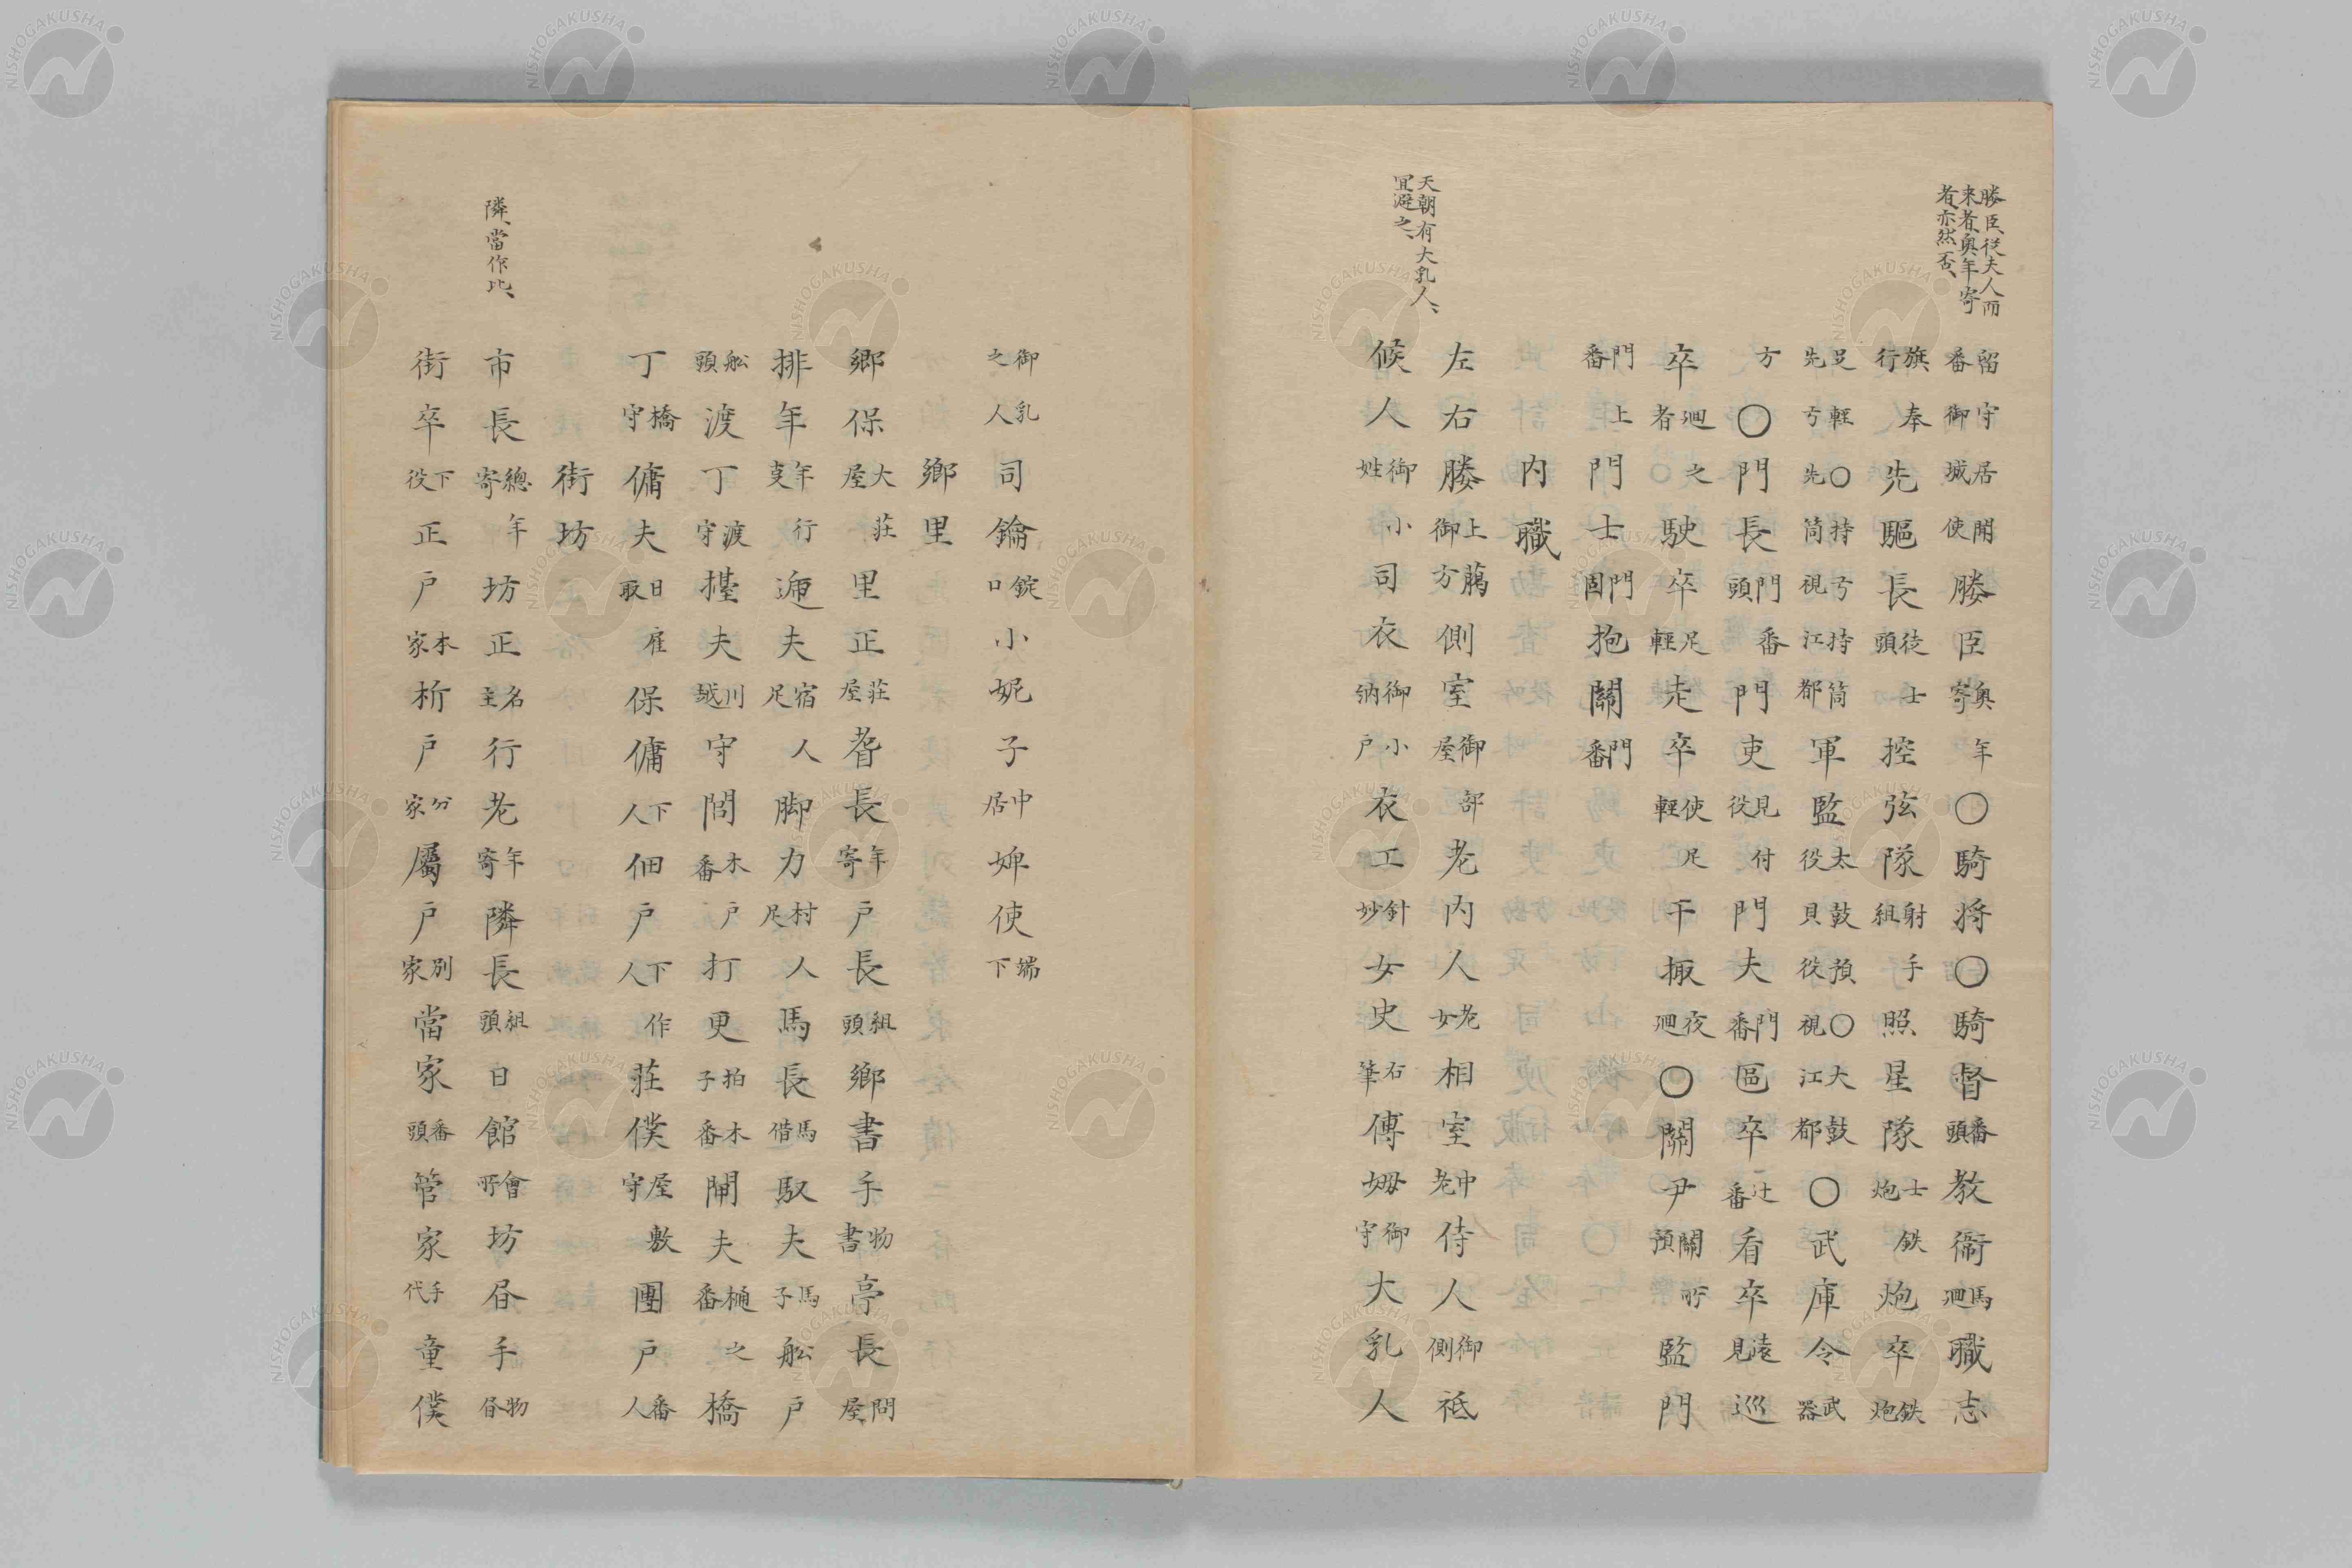 媵臣從夫人而
来者奥年寄
者亦然否、
留守居開番御城使媵臣奥年寄○騎将○騎督番頭教衛馬廻職志
旗奉行先驅長徒士頭控弦隊射手組照星隊士鉄炮炮卒鉄炮
足輕○持弓持筒先弓先筒視江都軍監太鼓預○大鼓役貝役視江都○武庫令武器
方○門長門番頭門吏見付役門夫門番區卒辻番看卒遠見巡
卒廻之者駛卒足輕走卒使足輕干掫夜廻○關尹關所預監門
門上番門士門固抱關門番
内職
天朝有大乳人、
宜避之、
左右媵上﨟御方側室御部屋老内人老女相室中老侍人御側祗
候人御小姓司衣御小納戸衣工針妙女史石筆傅姆御守大乳人
御乳之人司鑰錠口小妮子中居婢使端下
鄉里
鄉保大莊屋里正莊屋耆長年寄戸長組頭鄉書手物書亭長問屋
排年年行支遞夫宿人足脚力村人足馬長馬借馭夫馬子舩戸
舩頭渡丁渡守擡夫川越守閭木戸番打更拍子木番閘夫樋之番橋
丁橋守傭夫日雇取保傭下人佃戸下作人莊僕屋敷守團戸番人
街坊
隣、當作比、
市長總年寄坊正名主行老年寄隣長組頭日館會所坊昏手物昏
街卒下役正戸本家析戸分家屬戸別家當家番頭管家手代童僕